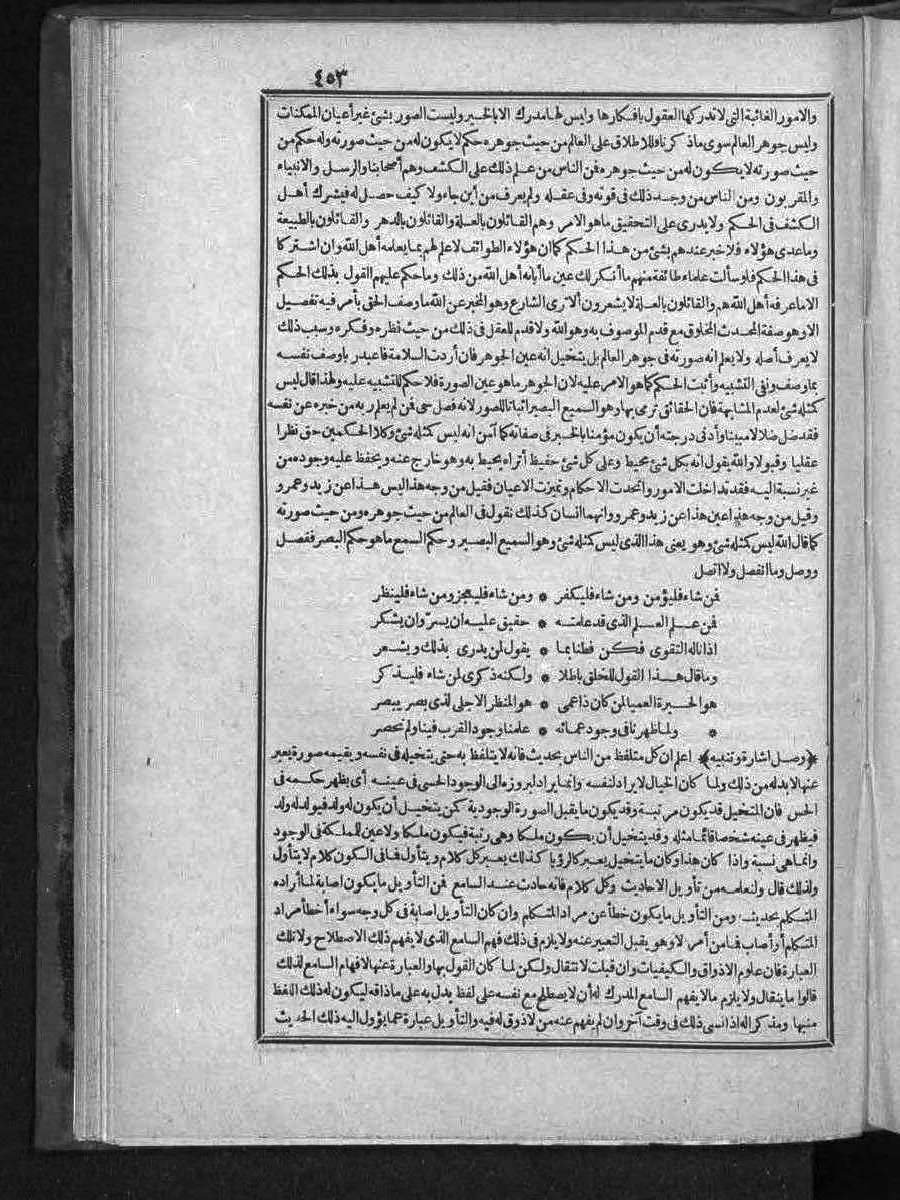 ٤٥٣
والامور الغائبة التى لا تدركها العقول بافكارها وليس لها مدرك الا بالخبر وليست الصور بشئ غير أعيان الممكنات
وليس جوهر العالم سوى ما ذكرناه فللاطلاق على العالم من حيث جوهره حكم لا يكون له من حيث صورته وله حكم من
حيث صورته لا يكون له من حيث جوهره فمن الناس من علم ذلك على الكشف وهم أصحابنا والرسل والانبياء
والمقربون ومن الناس من وجد ذلك فى قوته وفى عقله ولم يعرف من أين جاء ولا كيف حصل له فيشرك أهل
الكشف فى الحكم ولا يدرى على التحقيق ما هو الامر وهم القائلون بالعلة والقائلون بالدهر والقائلون بالطبيعة
وما عدى هؤلاء فلا خبر عندهم بشئ من هذا الحكم كما ان هؤلاء الطوائف لا علم لهم بما يعلمه أهل الله وان اشتركا
فى هذا الحكم فلو سألت علماء طائفة منهم ما أنكر لك عين ما أبانه أهل الله من ذلك وما حكم عليهم القول بذلك الحكم
الا ما عرفه أهل الله هم والقائلون بالعلة لا يشعرون ألا ترى الشارع وهو المخبر عن الله ما وصف الحق بأمر فيه تفصيل
الا وهو صفة المحدث المخلوق مع قدم الموصوف به وهو الله ولا قدم للعقل فى ذلك من حيث نظره وفكره وسبب ذلك
لا يعرف أصله ولا يعلم انه صورته فى جوهر العالم بل يتخيل انه عين الجوهر فان أردت السلامة فاعبد ربا وصف نفسه
بما وصف ونفى التشبيه وأثبت الحكم كما هو الامر عليه لان الجوهر ما هو عين الصورة فلا حكم للتشبيه عليه ولهذا قال ليس
كمثله شئ لعدم المشابهة فان الحقائق ترمى بها وهو السميع البصير اثباتا للصور لانه فصل حى فمن لم يعلم ربه من خبره عن نفسه
فقد ضل ضلالا مبينا وأدنى درجته أن يكون مؤمنا بالخبر فى صفاته كما آمن انه ليس كمثله شئ وكلا الحكمين حق نظرا
عقليا وقبولا والله يقول انه بكل شئ محيط وعلى كل شئ حفيظ أتراه يحيط به وهو خارج عنه ويحفظ عليه وجوده من
غير نسبة اليه فقد تداخلت الامور واتحدت الاحكام وتميزت الاعيان فقيل من وجه هذا ليس هذا عن زيد وعمرو
وقيل من وجه هذا عين هذا عن زيد وعمرو وانهما انسان كذلك نقول فى العالم من حيث جوهره ومن حيث صورته
كما قال الله ليس كمثله شئ وهو يعنى هذا الذى ليس كمثله شئ وهو السميع البصير وحكم السمع ما هو حكم البصر ففصل
ووصل وما انفصل ولا اتصل
فمن شاء فليؤمن ومن شاء فليكفر * ومن شاء فليعجز ومن شاء فلينظر
فمن علم العلم الذى قد علمته * حقيق عليه ان يسر وان يشكر
اذا ناله التقوى فكن فطنا بما * يقول لمن يدرى بذلك ويشعر
وما قال هذا القول للخلق باطلا * ولكنه ذكرى لمن شاء فليذكر
هو الحسيرة العمياء لمن كان ذا عمى * هو المنظر الاجلى لذى بصر يبصر
* ولما ظهرنا فى وجود عمائه * علمنا وجود القرب فينا ولم نحصر
﴿وصل اشارة وتنبيه﴾ اعلم ان كل متلفظ من الناس بحديث فانه لا يتلفظ به حتى يتخيله فى نفسه ويقيمه صورة يعبر
عنها لا بد له من ذلك ولما كان الخيال لا يراد لنفسه وانما يراد لبروزه الى الوجود الحسى فى عينه أى يظهر حكمه فى
الحس فان المتخيل قد يكون مرتبة وقد يكون ما يقبل الصورة الوجودية كمن يتخيل أن يكون له ولد فيولد له ولد
فيظهر فى عينه شخصا قائما مثله وقد يتخيل أن يكون ملكا وهى رتبة فيكون ملكا ولا عين للمملكة فى الوجود
وانما هى نسبة واذا كان هذا وكان ما يتخيل يعبر كالرؤيا كذلك يعبر كل كلام ويتأول فما فى الكون كلام لا يتأول
ولذلك قال ولنعلمه من تأويل الاحاديث وكل كلام فانه حادث عند السامع فمن التأويل ما يكون اصابة لما أراده
المتكلم بحديثه ومن التأويل ما يكون خطأ عن مراد المتكلم وان كان التأويل اصابة فى كل وجه سواء أخطأ مراد
المتكلم أو أصاب فما من أمر الا وهو يقبل التعبير عنه ولا يلزم فى ذلك فهم السامع الذى لا يفهم ذلك الاصطلاح ولا تلك
العبارة فان علوم الاذواق والكيفيات وان قبلت لا تنقال ولكن لما كان القول بها والعبارة عنها لافهام السامع لذلك
قالوا ما ينقال ولا يلزم ما لا يفهم السامع المدرك له أن لا يصطلح مع نفسه على لفظ يدل به على ما ذاقه ليكون له ذلك اللفظ
منبها ومذكرا له اذا نسى ذلك فى وقت آخر وان لم يفهم عنه من لا ذوق له فيه والتأويل عبارة عما يؤول اليه ذلك الحديث